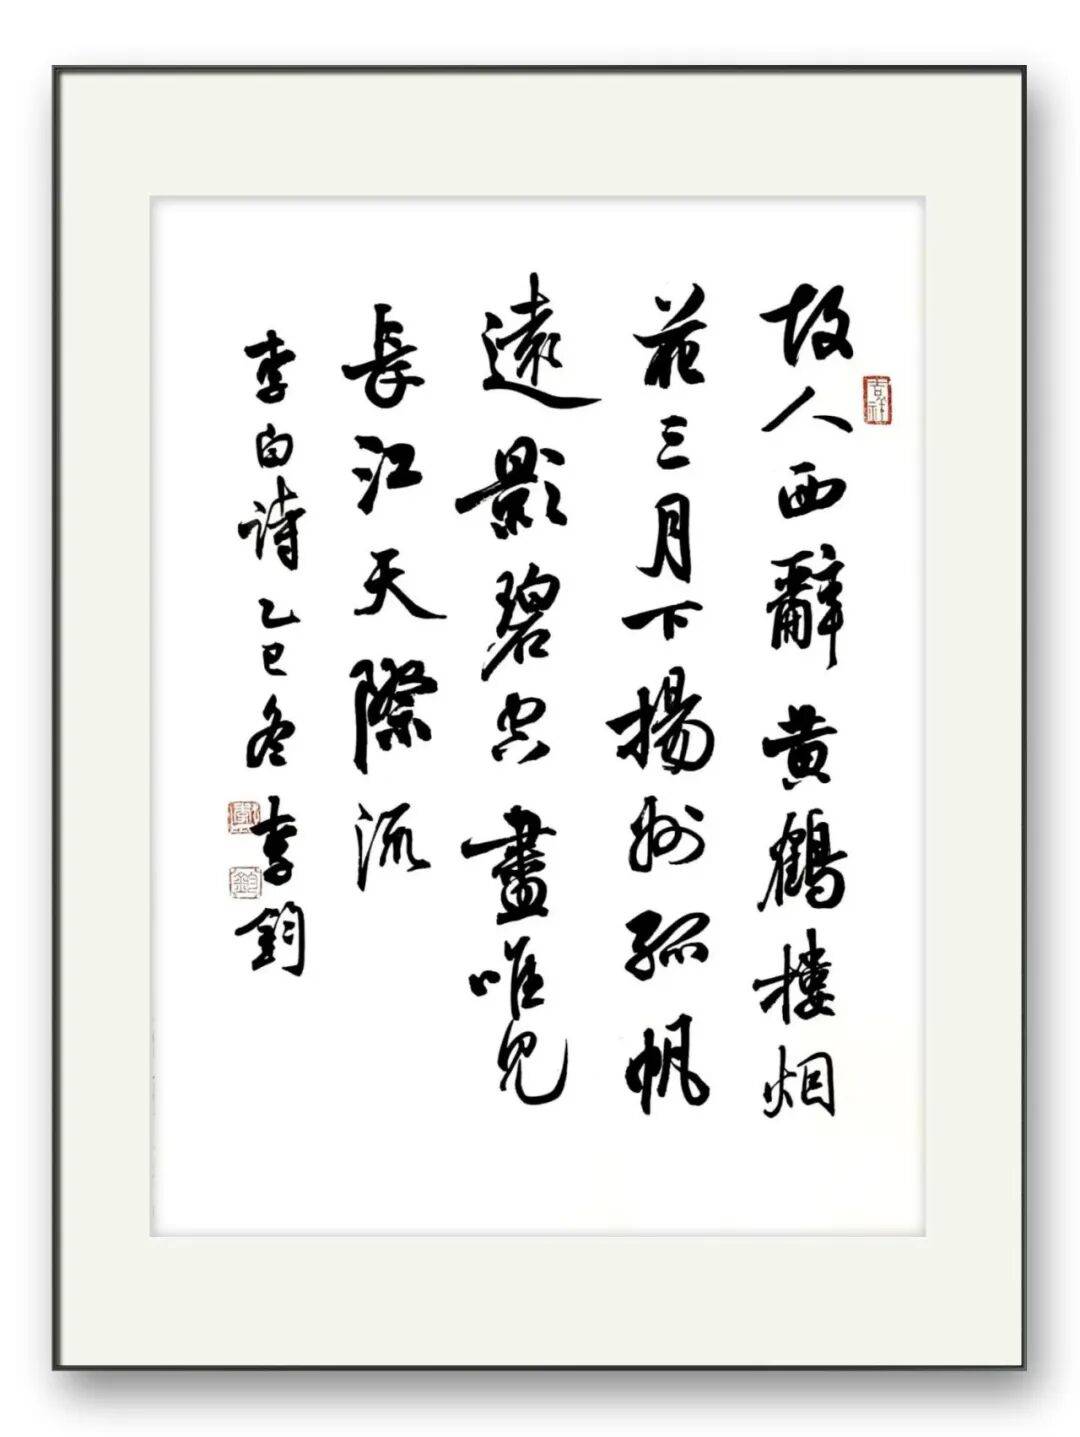 吉祥
故人西辭黄鶴樓烟
花三月下揚州孤帆
遠影碧空盡唯見
長江天際流
李白詩乙巳冬李鈞